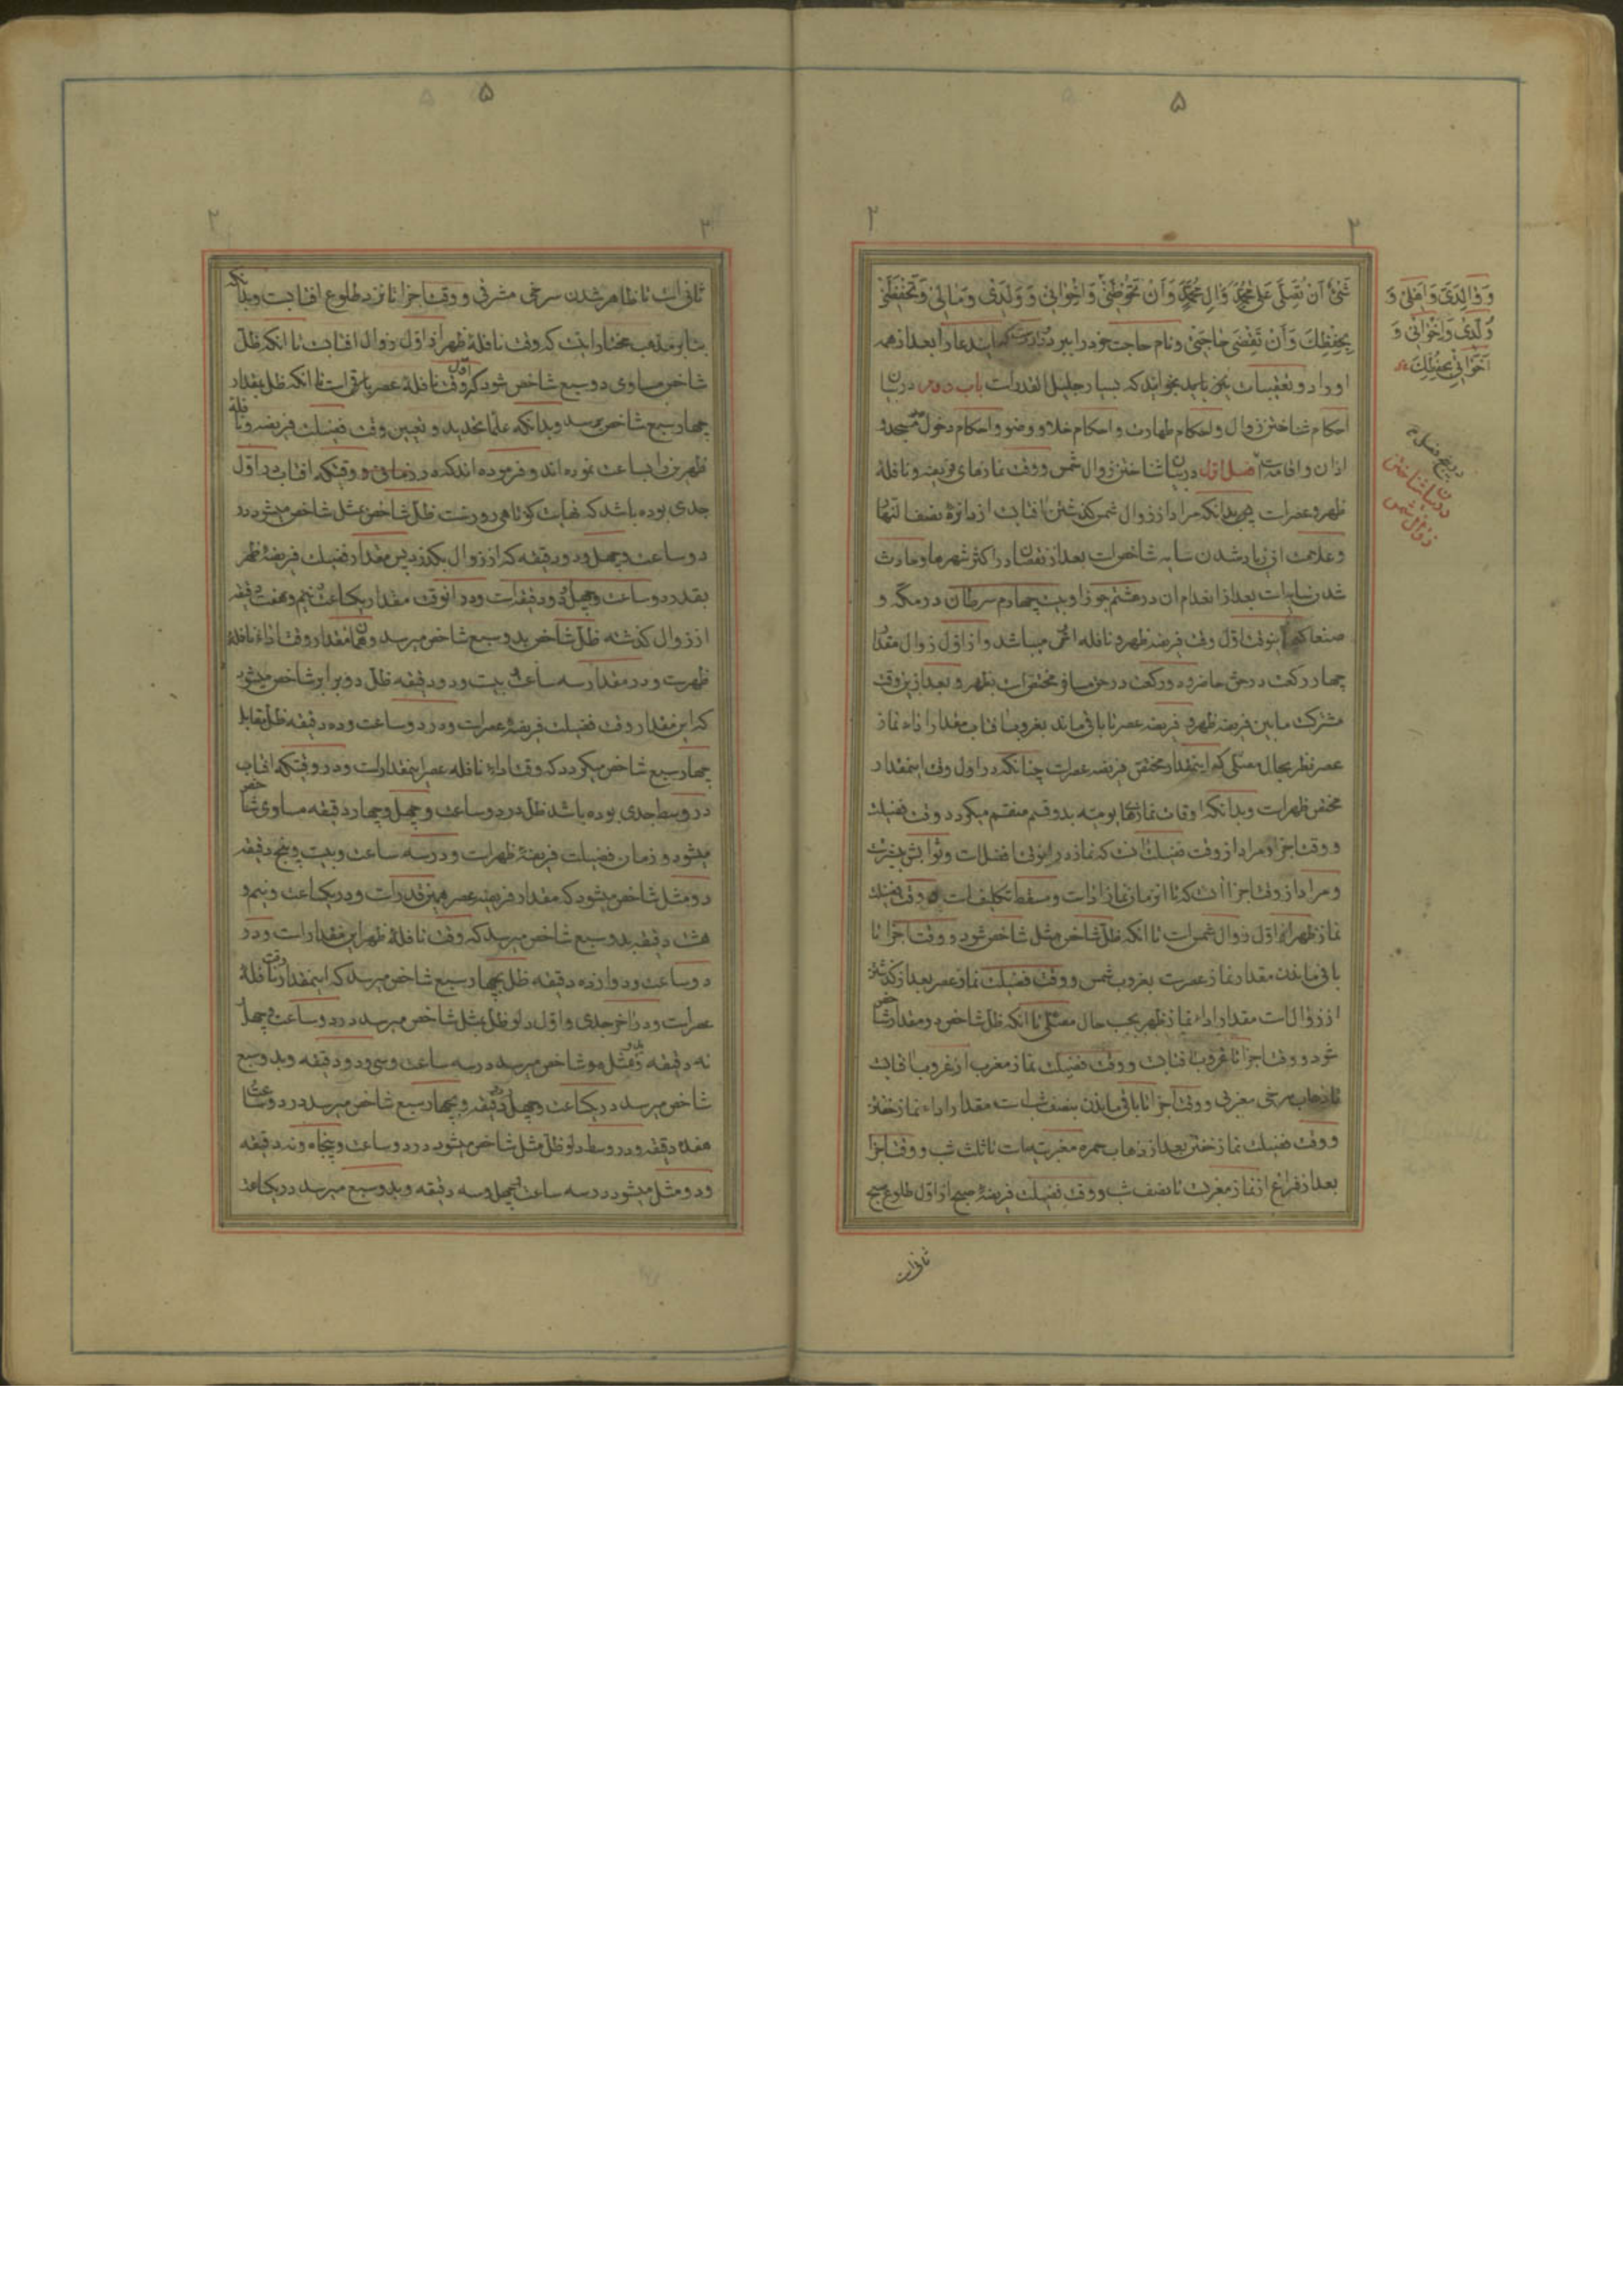 ۵
۲ ۲
شَیْءٍ اَنْ تُصَلِّیَ عَلٰی مُحَمَّدٍ وَاٰلِ مُحَمَّدٍ وَاَنْ تَحُوطَنی وَاِخْوانی وَوَلَدی وَمالی وَتَحْفَظَنی
بِحِفْظِكَ وَأَنْ تَقْضِیَ حاجَتی ونام حاجت خود را ببرد بعد از همه
اوراد و تعقیبات نیز باید بخواند که بسیار جلیل القدر است باب دوم در بیان
احکام شناختن زوال واحکام طهارت واحکام خلا ووضو واحکام دخول مسجد و
اذان واقامه فصل اول در بیان شناختن زوال شمس ووقت نمازهای فریضه ونافله
ظهر وعصر است بدانکه مراد از زوال شمس کذشتن افتابست از دایرۀ نصف النهار
وعلامت ان زیاد شدن سایه شاخص است بعد از نقصان در اکثر شهرها وحادث
شدن سایه است بعد از انعدام ان در هشتم جوزا وبیست چهارم سرطان در مکه و
صنعا اول وقت فریضه ظهر ونافله ان میباشد واز اول زوال مقدار
چهار رکعت در حق حاضر ودو رکعت در حق مسافر مختص است بظهر وبعد ازین وقت
مشترك مابین فریضه ظهر وفریضه عصر تا باقی ماند بغروب افتاب مقدار اداء نماز
عصر نظر بحال مصلی که اینمقدار مختص فریضه عصر است چنانکه در اول وقت اینمقدار
مختص ظهر است وبدانکه اوقات نمازهای یومیه بدو قسم منقسم میکردد وقت فضیلت
ووقت اجزا ومراد از وقت فضیلت انست که نماز در انوقت افضل است وثوابش بیشتر است
ومراد از وقت اجزا انست که تا انزمان نماز اداست ومسقط تکلیف است وقت فضیلت
نماز ظهر از اول زوال شمس است تا انکه ظل شاخص مثل شاخص شود ووقت اجزا تا
باقی ماندن مقدار نماز عصر است بغروب شمس ووقت فضیلت نماز عصر بعد از کذشتن
از زوال است مقدار اداء نماز ظهر بحسب حال مصلی تا انکه ظل شاخص دو مقدار شاخص
شود ووقت اجزا تا غروب افتابست ووقت فضیلت نماز مغرب از غروب افتابست
تا ذهاب سرخی مغربی ووقت اجزا تا باقی ماندن بنصف شب است مقدار اداء نماز خفتن
ووقت فضیلت نماز خفتن بعد از ذهاب حمره مغربیه است تا ثلث شب ووقت اجزا
بعد از فراغ از نماز مغربست تا نصف شب ووقت فضیلت فریضۀ صبح از اول طلوع صبح
ثانی است
وَوالِدَیَّ وَاَهْلی وَ
وُلْدی وَاِخْوانی وَ
اَخَواتی بِحِفْظِكَ
در بیان شناختن
زوال شمس
۵
۲ ۲
ثانی است تا ظاهر شدن سرخی مشرقی ووقت اجزا تا نزد طلوع افتابست وبدانکه
بنا بر مذهب مختار اینست که وقت نافلۀ ظهر از اول زوال افتابست تا انکه ظل
شاخص مساوی دو سبع شاخص شود که اول وقت نافلۀ عصر باقی است تا انکه ظل بمقدار
چهار سبع شاخص برسد وبدانکه علما تحدید وتعیین وقت فضیلت فریضه ونافلۀ
ظهرین را بساعت نموده اند وفرموده اند که در زمانی ووقتیکه افتاب در اول
جدی بوده باشد که نهایت کوتاهی روز است ظل شاخص بمثل شاخص میشود در
دو ساعت وچهل ودو دقیقه که از زوال بکذرد پس مقدار فضیلت فریضۀ ظهر
بقدر دو ساعت وچهل ودو دقیقه است ودر انوقت مقدار یکساعت ونیم وهفت دقیقه
از زوال کذشته ظل شاخص بدو سبع شاخص میرسد وهمان مقدار وقت اداء نافلۀ
ظهر است ودر مقدار سه ساعت وبیست ودو دقیقه ظل دو برابر شاخص میشود
که این مقدار وقت فضیلت فریضۀ عصر است ودر دو ساعت وده دقیقه ظل مقابل
چهار سبع شاخص میکردد که وقت اداء نافله عصر اینمقدار است ودر وقتیکه افتاب
در وسط جدی بوده باشد ظل در دو ساعت وچهل وچهار دقیقه مساوی شاخص
میشود وزمان فضیلت فریضۀ ظهر است ودر سه ساعت وبیست وپنج دقیقه
دو مثل شاخص میشود که مقدار فریضه عصر همین قدر است ودر یکساعت ونیم و
هشت دقیقه بدو سبع شاخص میرسد که وقت نافلۀ ظهر این مقدار است ودر
دو ساعت ودوازده دقیقه ظل بچهار سبع شاخص میرسد که اینمقدار وقت نافلۀ
عصر است ودر اخر جدی واول دلو ظل بمثل شاخص میرسد در دو ساعت وچهل
نه دقیقه وبدو مثل شاخص میرسد در سه ساعت وسی ودو دقیقه وبدو سبع
شاخص میرسد در یکساعت وچهل دقیقه وبچهار سبع شاخص میرسد در دو ساعت
هفده دقیقه ودر وسط دلو ظل مثل شاخص میشود در دو ساعت وپنجاه ونه دقیقه
ودو مثل میشود در سه ساعت وچهل وسه دقیقه وبدو سبع میرسد در یکساعت